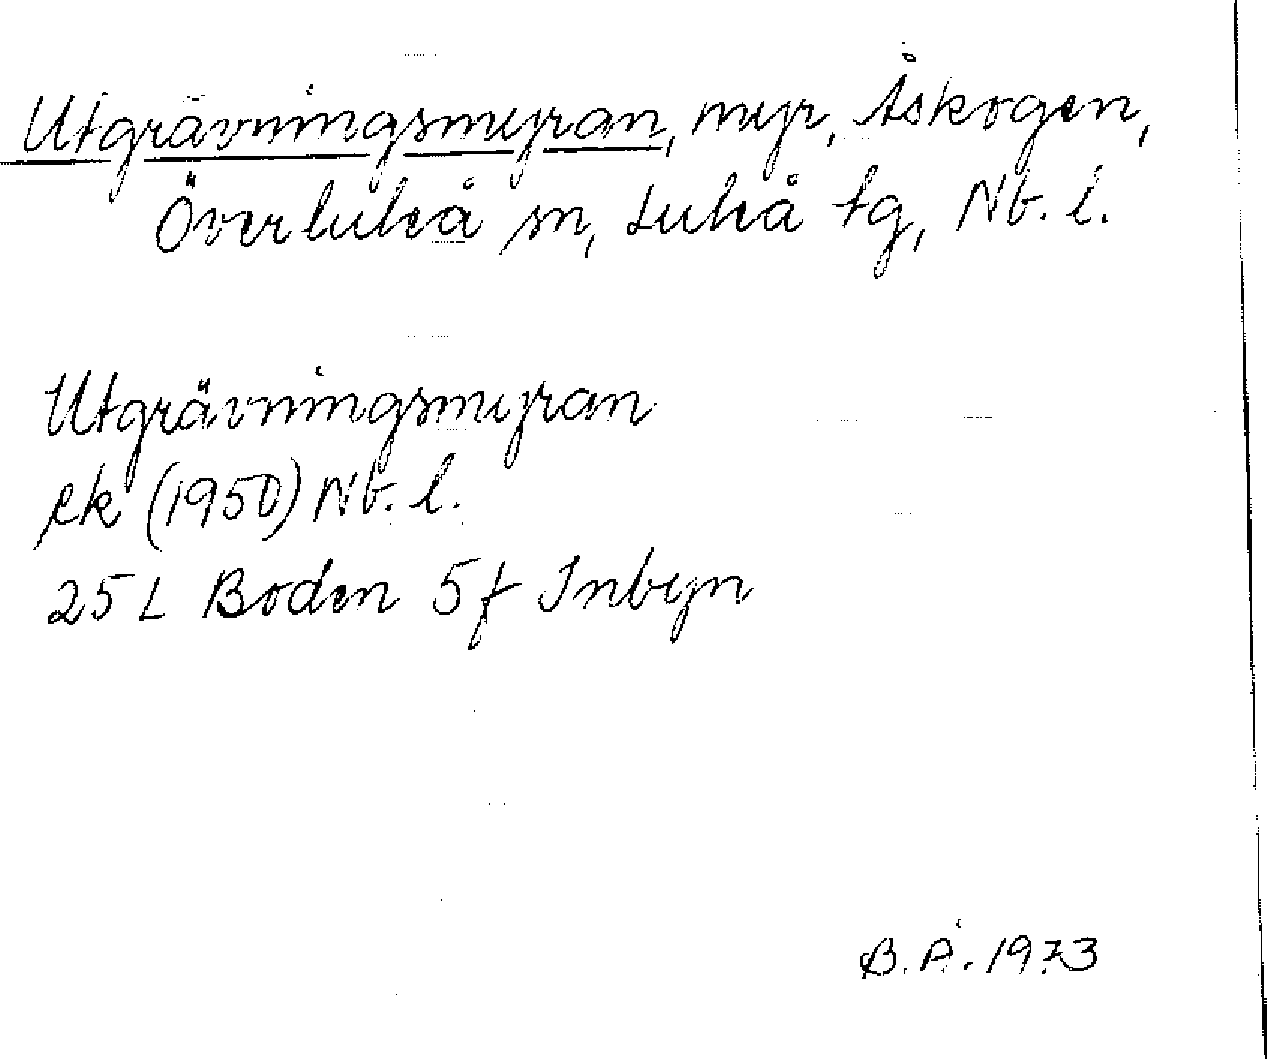 Utgrävningsmyran, myr, Åskogen,
Överluleå sn, Luleå tg, Nb. l.
Utgrävningsmyran
ek (1950) Nb. l.
25 L Boden 5f Inbyn
B. Å. 1973